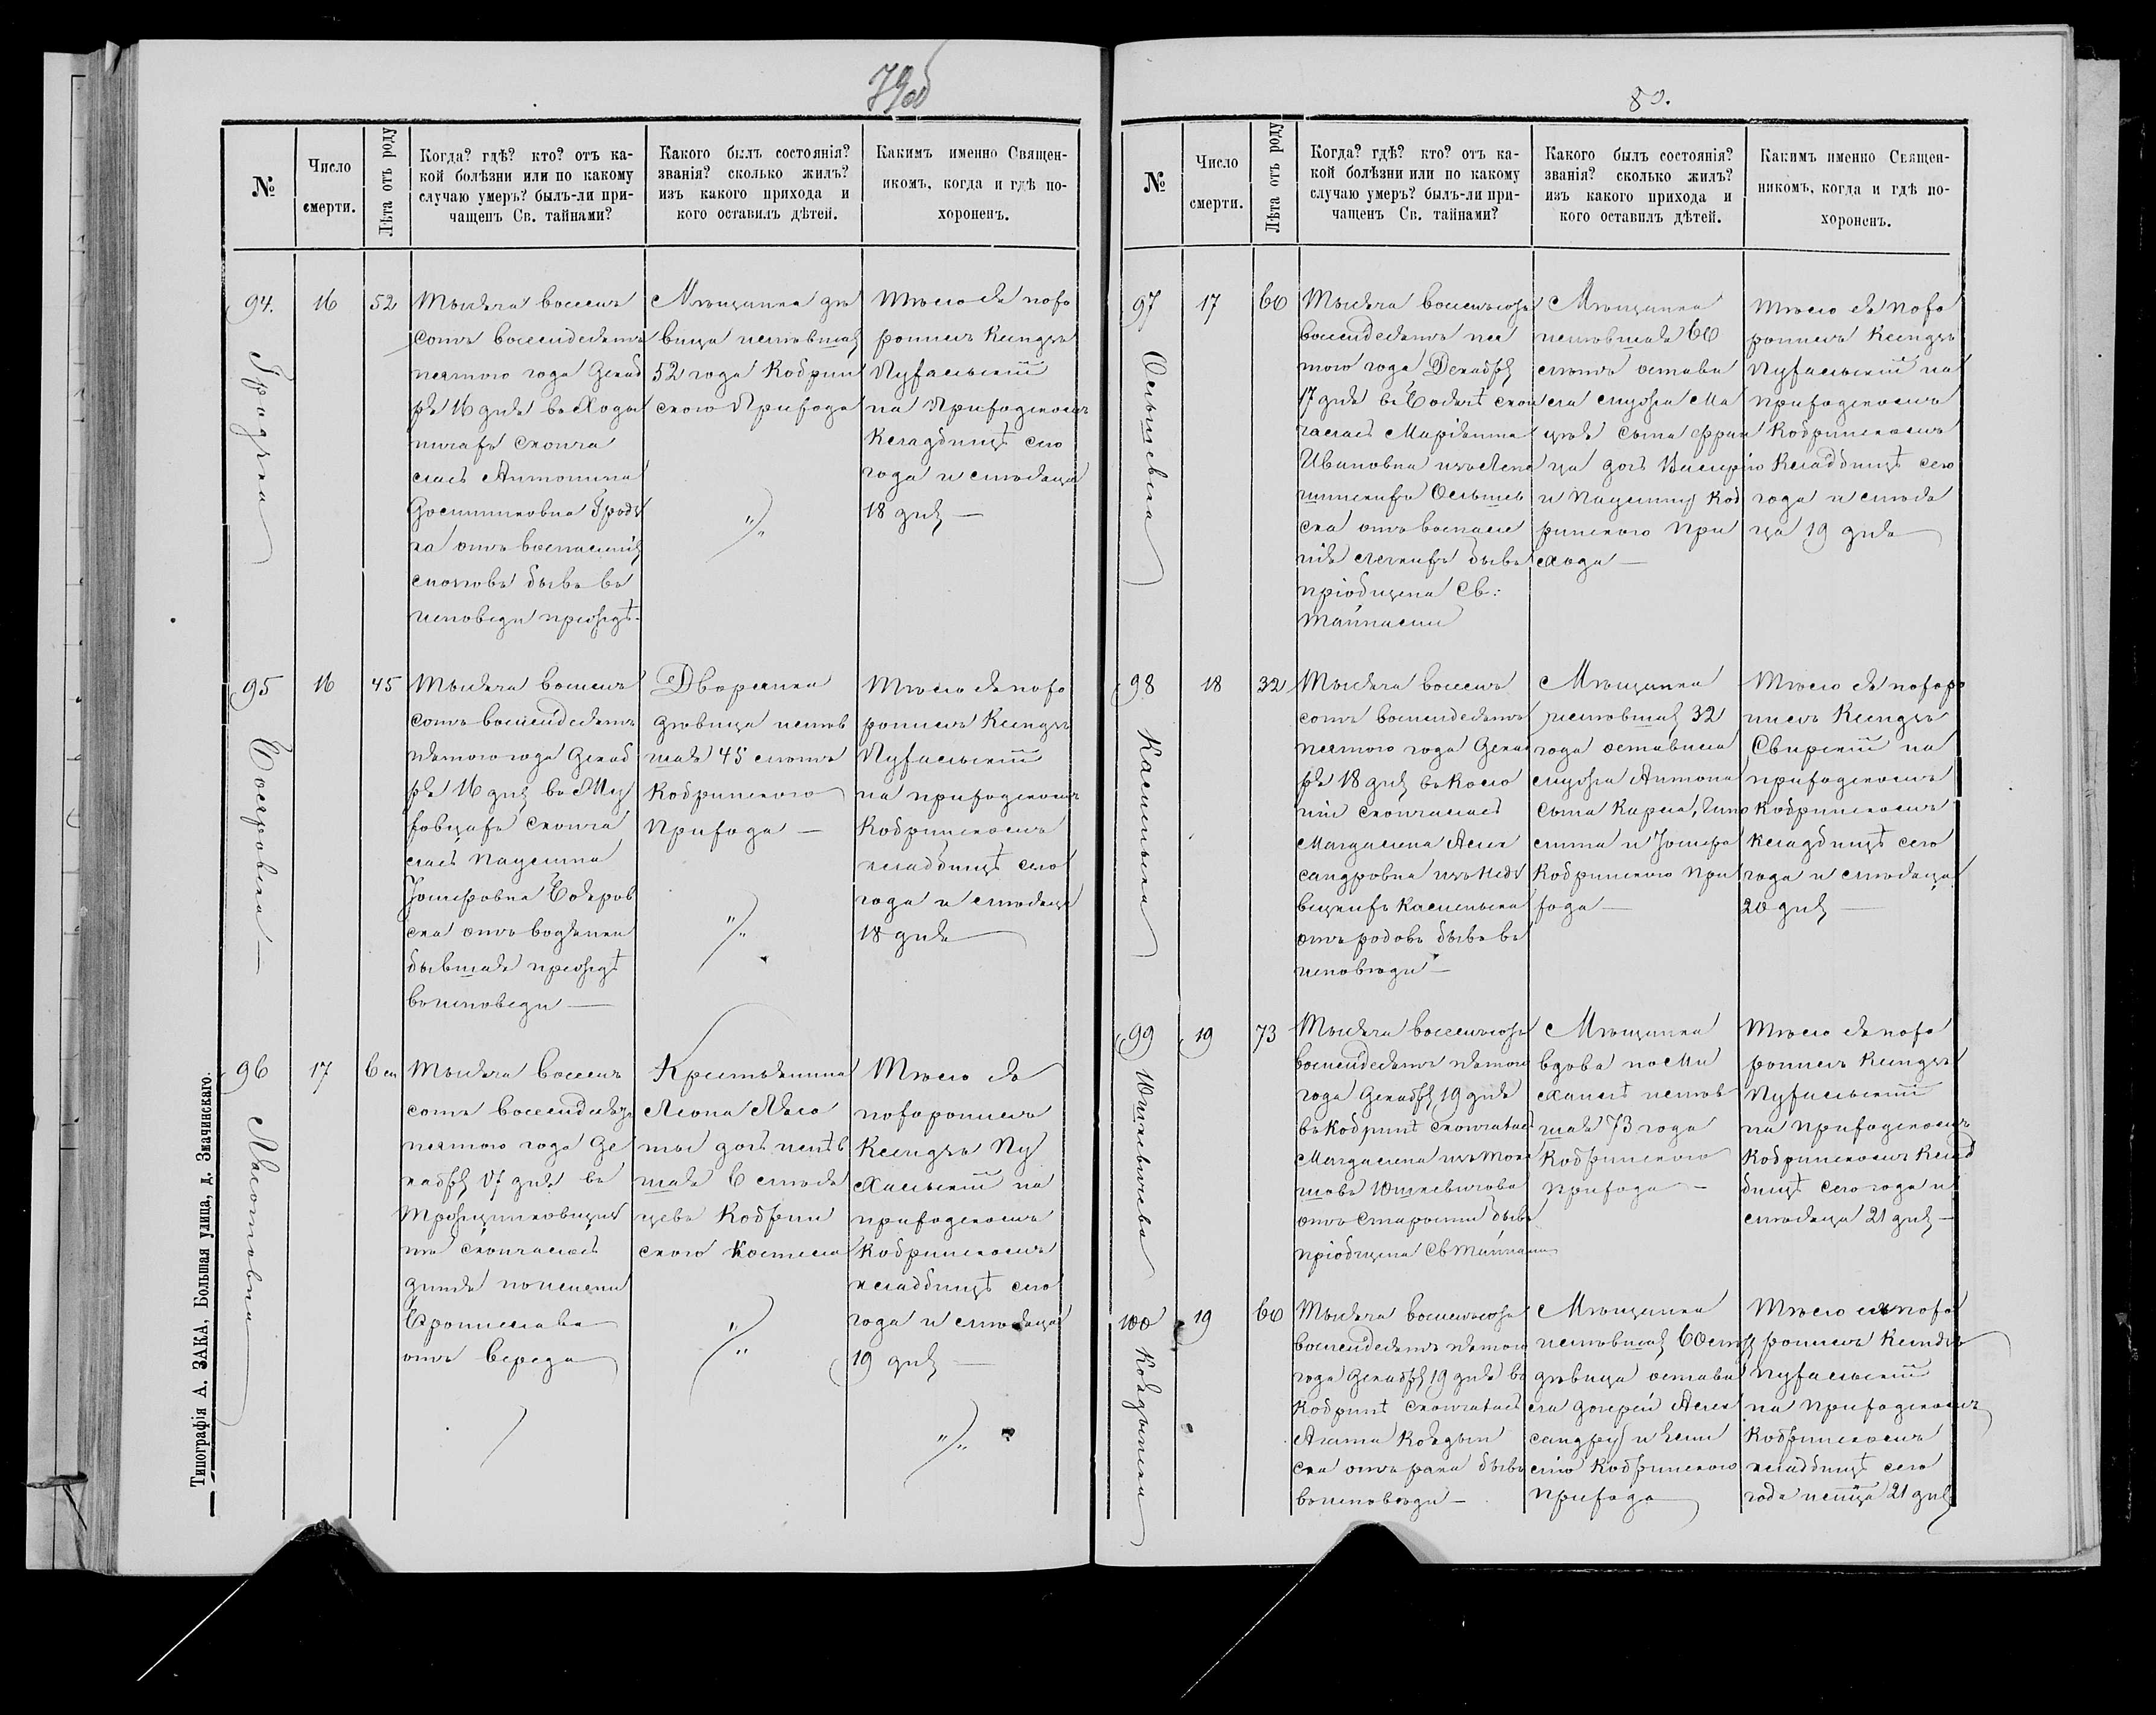 79об
№
Число
смерти.
Лѣта отъ роду
Когда? гдѣ? кто? отъ ка-
кой болѣзни или по какому
случаю умеръ? былъ-ли при-
чащенъ Св. тайнами?
Какого былъ состоянія?
званія? сколько жилъ?
изъ какого прихода и
кого оставилъ дѣтей.
Какимъ именно Священ-
никомъ, когда и гдѣ по-
хороненъ.
94.
Гридзка
16
52
Тысяча восемь
сотъ восемдесятъ
пятого года Декаб
ря 16 дня въ Ходы
ничахъ сконча
лась Антонина
ка отъ воспаленія
бывъ въ
исповеди прежде
Мѣщанка дѣ
вица имевшая
52 года Кобрин
ского Прихода
Тѣло ея похо
роненъ Ксендзъ
Пухальскій
на Приходскомъ
Кладбищѣ сего
года и месяца
18 дня —
95
Бояровска —
16
45
Тысяча восемь
сотъ восемдесятъ
пятого года Декаб
ря 16 дня въ Му
ховцахъ сконча
лась Паулина
Іосифовна Бояров
ска отъ водянки
бывшая прежде
въ исповеди —
Дворянка
дѣвица имев
шая 45 летъ
Кобринского
Прихода —
Тѣло ея похо
роненъ Ксендзъ
Пухальскій
на приходскомъ
Кобринскомъ
кладбищѣ сего
года и месяца
18 дня
96
17
6 м
Тысяча восемь
сотъ восемдесятъ
пятого года Де
кабря 17 дня въ
скончалось
дитя по имени
Брониславъ
отъ вереда
Крестьянина
Леона
шая 6 меся
цевъ Кобрин
ского Костела
Тѣло ея
похороненъ
Ксендзъ Пу
хальскій на
приходскомъ
Кобринскомъ
кладбищѣ сего
года и месяца
19 дня —
Типографія А. ЗАКА, Большая улица, д. Змачинскаго.
80.
№
Число
смерти.
Лѣта отъ роду
Когда? гдѣ? кто? отъ ка-
кой болѣзни или по какому
случаю умеръ? былъ-ли при-
чащенъ Св. тайнами?
Какого былъ состоянія?
званія? сколько жилъ?
изъ какого прихода и
кого оставилъ дѣтей.
Какимъ именно Священ-
никомъ, когда и гдѣ по-
хороненъ.
97
Ольшевска
17
60
Тысяча восемьсотъ
восемдесятъ пя
того года Декабря
17 дня въ скон
чалась Маріанна
Ивановна изъ
Ольшев
ска отъ воспале
нія легкихъ бывъ
пріобщена Св:
Тайнами
Мѣщанка
имевшая 60
летъ остави
ла мужа Ма
сына Фран
ца дочь Валерію
и Паулину Коб
ринского При
хода —
Тѣло ея похо
роненъ Ксендзъ
Пухальскій на
приходскомъ
Кобринскомъ
Кладбищѣ сего
года и меся
ца 19 дня
98
18
32
Тысяча восемь
сотъ восемдесятъ
пятого года Декаб
ря 18 дня въ Коло
ніи скончалась
Магдалена Алек
сандровна изъ
отъ родовъ бывъ въ
исповѣди —
Мѣщанка
имевшая 32
года оставила
мужа Антона
сына Карла,
и Іосифа
Кобринского При
хода —
Тѣло ея похоро
ненъ Ксендзъ
Свирскій на
приходскомъ
Кобринскомъ
Кладбищѣ сего
года и месяца
20 дня —
99
Юшкевичова
19
73
Тысяча восемьсотъ
восемдесятъ пятого
года Декабря 19 дня
въ Кобринѣ скончалась
Магдалена изъ
Юшкевичова
отъ старости бывъ
пріобщена Св Тайнами
Мѣщанка
вдова по Ми
хаилѣ имев
шая 73 года
Кобринского
Прихода —
Тѣло ея похо
роненъ Ксендзъ
Пухальскій
на Приходскомъ
Кобринскомъ Клад
бищѣ сего года и
месяца 21 дня —
100
19
60
Тысяча восемьсотъ
восемдесятъ пятого
года Декабря 19 дня въ
Кобринѣ скончалась
Агата
ска отъ рака бывъ
въ исповѣди —
Мѣщанка
имевшая 60 летъ
дѣвица остави
ла дочерей Алек
сандру и
Кобринского
Прихода
Тѣло ея похо
роненъ Ксендзъ
Пухальскій
на Приходскомъ
Кобринскомъ
кладбищѣ сего
года и мца 21 дня